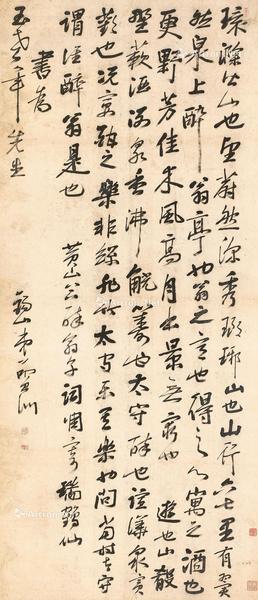 環滁皆山也望蔚然深秀瑯琊山也山行六七里有翼
然泉上醉翁亭也翁之意也得之心寓之酒也
更野芳佳木風高月出景無窮也遊也山殽
野蔌酒洌泉香沸觥籌也太守醉也諠譁眾賓
歡也況宴酣之樂非絲非竹太守樂其樂也問當時太守
謂誰醉翁是也 黃山公醉翁亭詞調寄瑞鶴仙
書為
玉老年先生